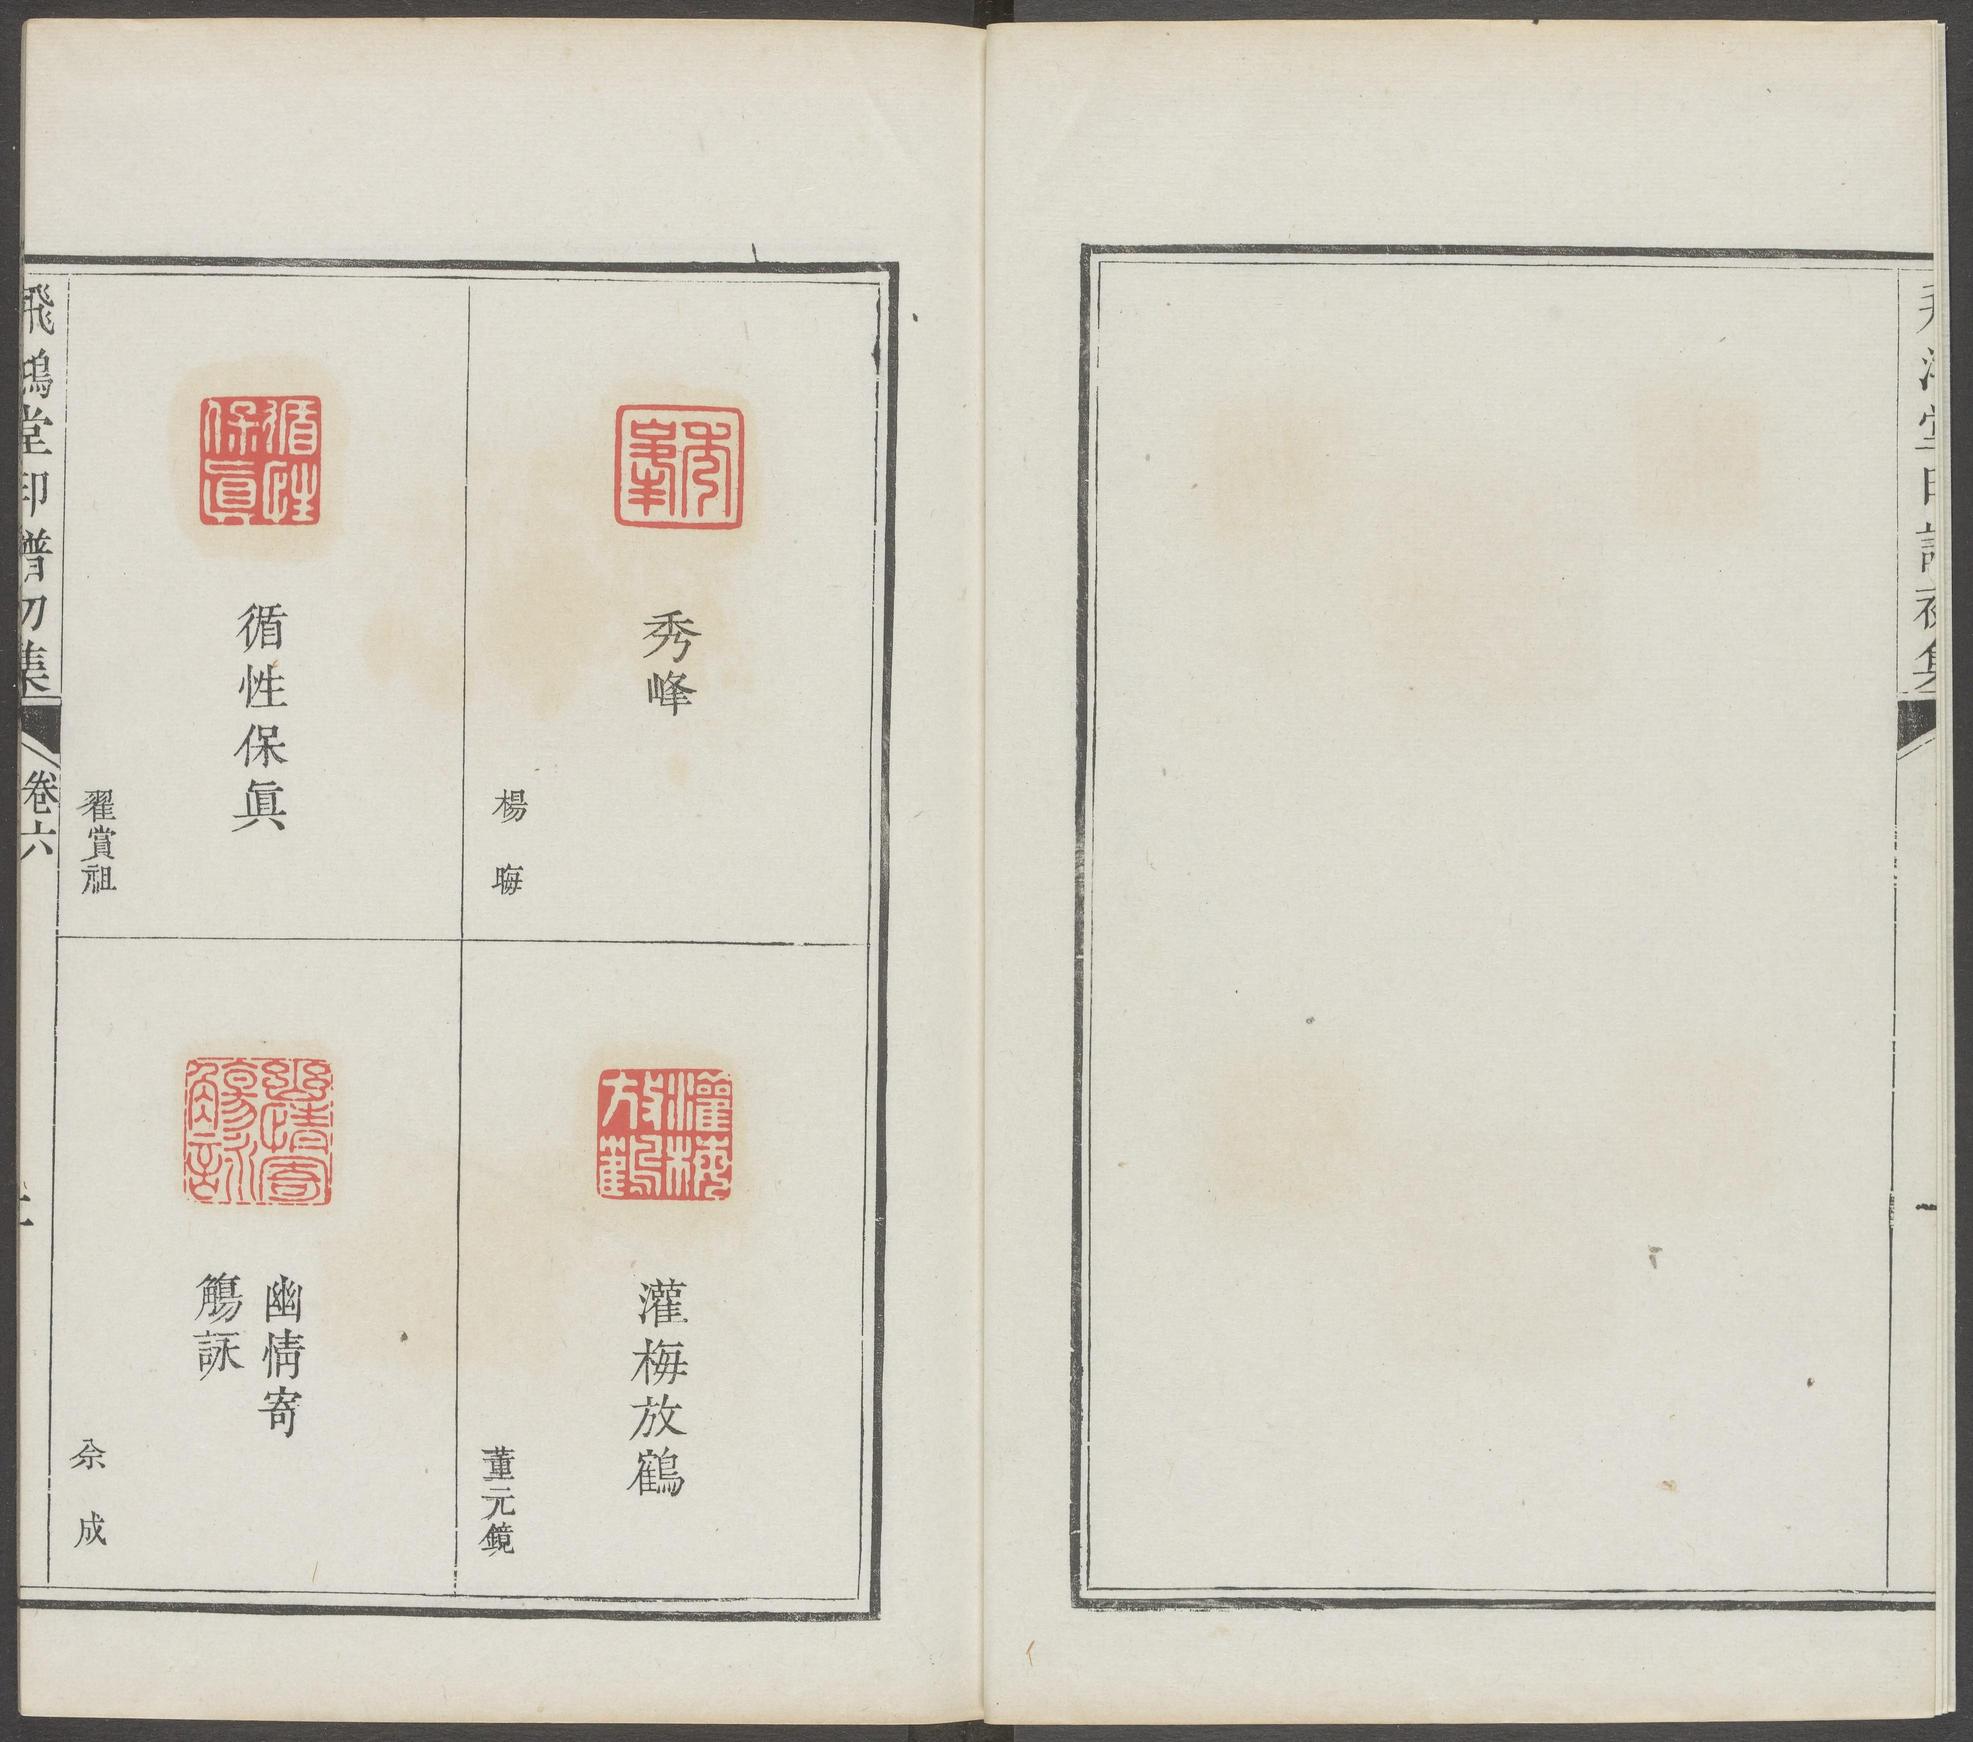 秀峰
楊晦
灌梅放鶴
董元鏡
循性保眞
翟賞祖
幽情寄
觴詠
佘成
飛鴻堂印譜初集
卷六